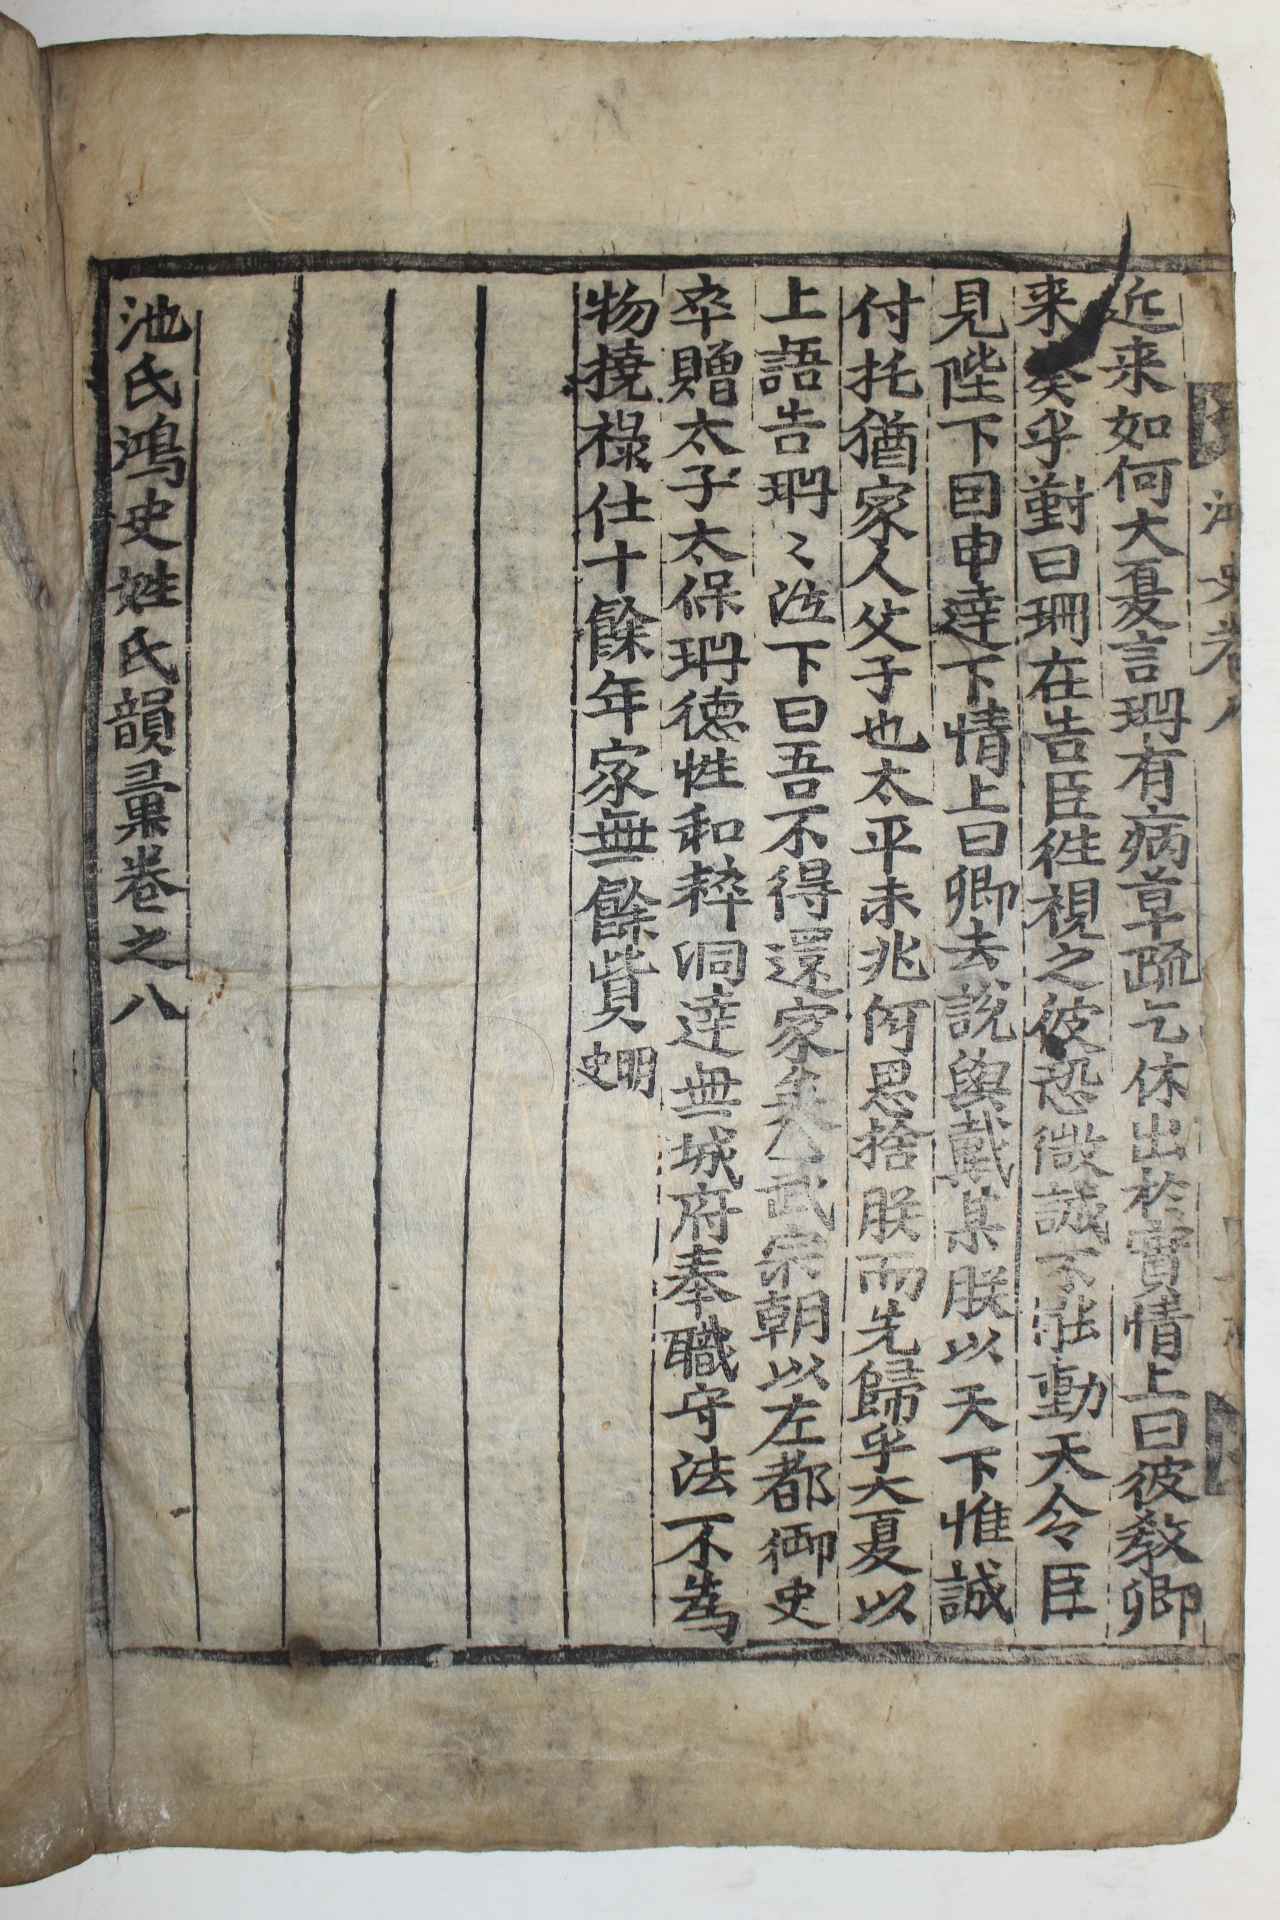 近来如何大夏言珊有病草疏乞休出於實情上曰彼敎卿
来奏乎對曰珊在告臣徃視之彼恐微誠不能動天令臣
見陛下囙申達下情上曰卿去說與戴某朕以天下惟誠
付托猶家人父子也太平未兆何忍捨朕而先歸乎大夏以
上語告珊〻泣下曰吾不得還家矣武宗朝以左都御史
卒贈太子太保珊德性和粹洞達無城府奉職守法不為
物撓祿仕十餘年家無餘貲 明史
池氏鴻史姓氏韻彙卷之八
鴻史卷八